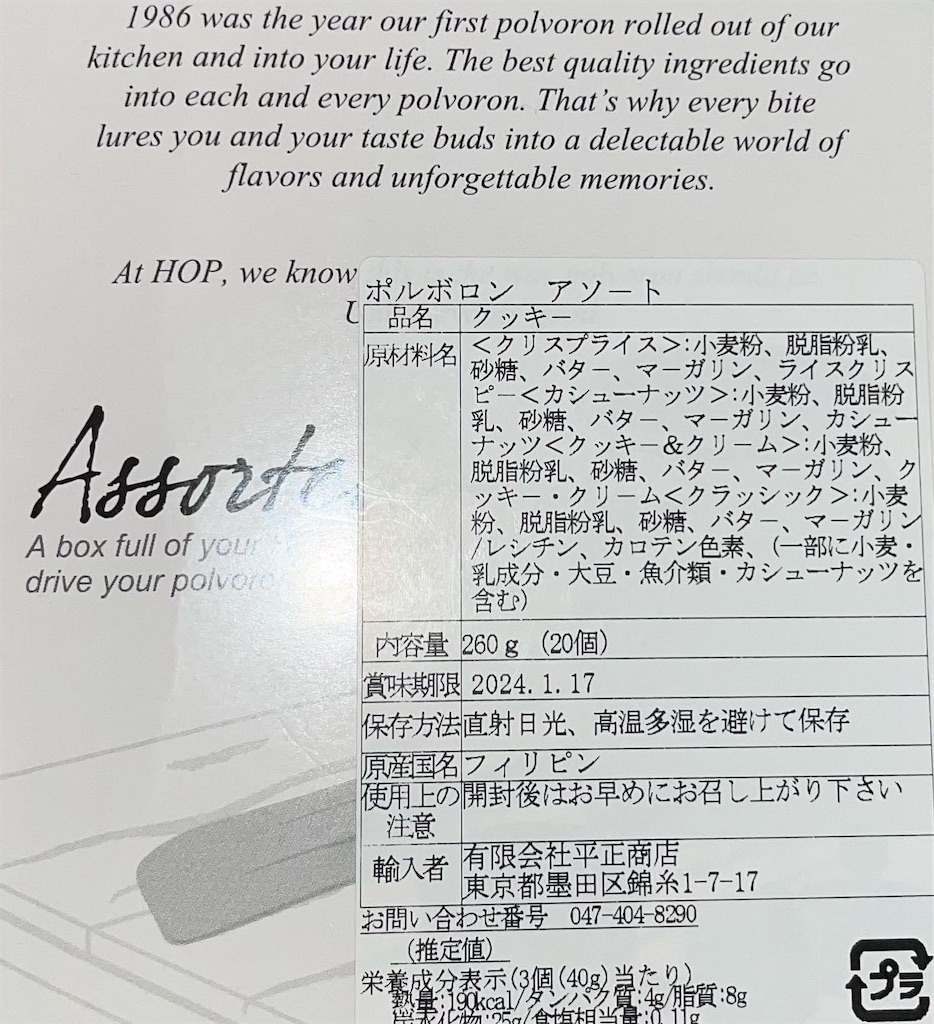 1986 was the year our first polvoron rolled out of our
kitchen and into your life. The best quality ingredients go
into each and every polvoron. That's why every bite
lures you and your taste buds into a delectable world of
flavors and unforgettable memories.
At HOP, we know
Assorte
A box full of your
drive your polvoro
ポルボロン アソート
品名 クッキー
原材料名 <クリスプライス>:小麦粉、脱脂粉乳、
砂糖、バター、マーガリン、ライスクリス
ピー<カシューナッツ>:小麦粉、脱脂粉
乳、砂糖、バター、マーガリン、カシュー
ナッツ<クッキー&クリーム>:小麦粉、
脱脂粉乳、砂糖、バター、マーガリン、ク
ッキー・クリーム<クラッシック>:小麦
粉、脱脂粉乳、砂糖、バター、マーガリン
/レシチン、カロテン色素、(一部に小麦・
乳成分・大豆・魚介類・カシューナッツを
含む)
内容量 260g (20個)
賞味期限 2024.1.17
保存方法 直射日光、高温多湿を避けて保存
原産国名 フィリピン
使用上の注意 開封後はお早めにお召し上がり下さい
輸入者 有限会社平正商店
東京都墨田区錦糸1-7-17
お問い合わせ番号 047-404-8290
(推定値)
栄養成分表示(3個(40g)当たり)
熱量:190kcal/タンパク質:4g/脂質:8g
炭水化物:25g/食塩相当量:0.11g
プラ